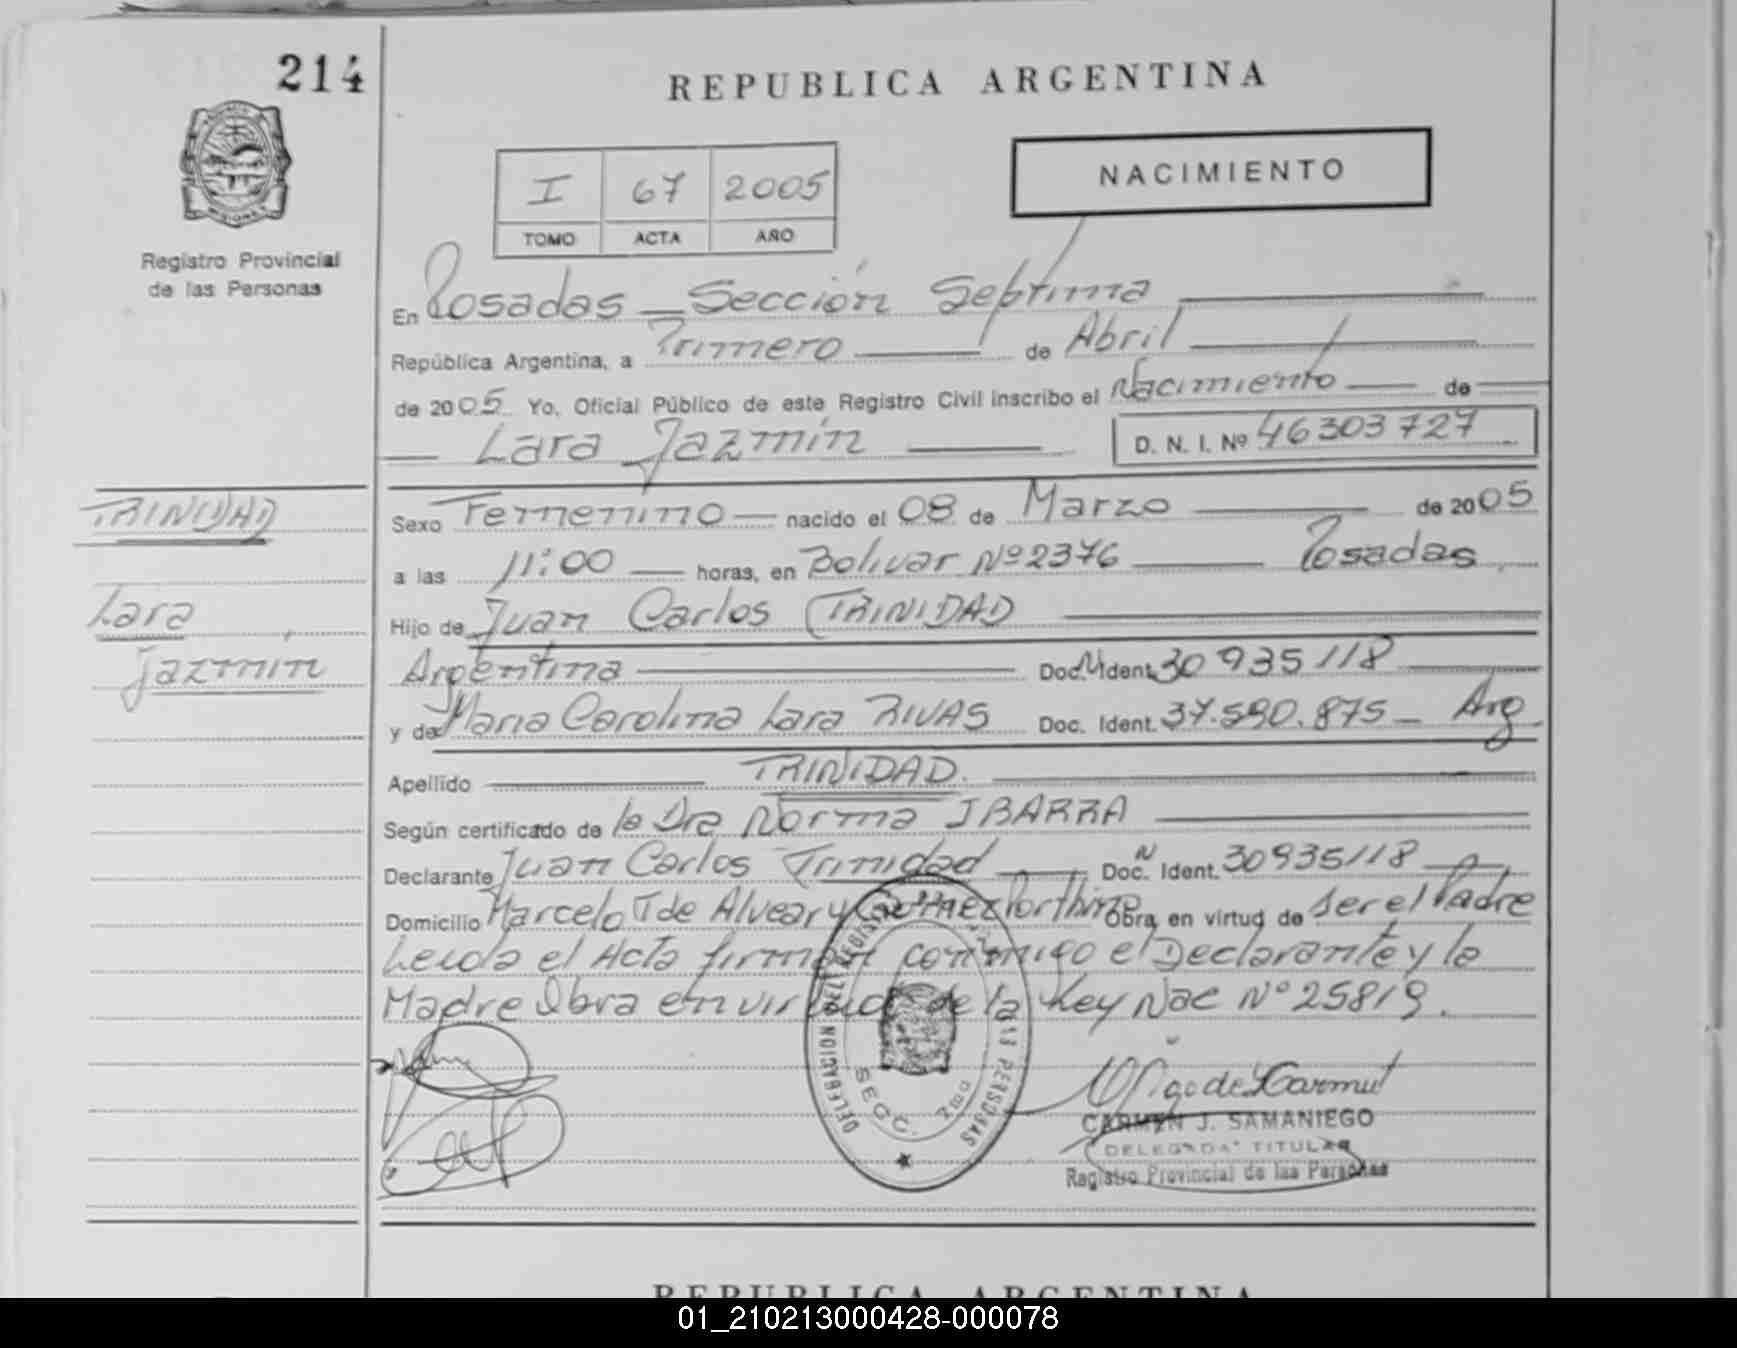 214
REPUBLICA ARGENTINA
NACIMIENTO
I 67 2005
TOMO ACTA AÑO
Registro Provincial
de las Personas
En Posadas - Sección Septima
República Argentina, a Primero de Abril
de 2005 Yo, Oficial Público de este Registro Civil inscribo el Nacimiento de
Lara Jazmín D. N. I. Nº 46303727
TRINIDAD
Lara
Jazmín
Sexo Femenino nacido el 08 de Marzo de 2005
a las 11:00 horas, en Bolivar Nº 2376 Posadas
Hijo de Juan Carlos TRINIDAD
Argentina Doc. N Ident. 30935118
y de Maria Carolina Lara RIVAS Doc. Ident. 37.590.875 - Arg
Apellido TRINIDAD.
Según certificado de la Dra Norma IBARRA
Declarante Juan Carlos Trinidad Doc. N Ident. 30935118
Domicilio Marcelo T de Alvear y Obra en virtud de ser el Padre
Leida el Acta firman conmigo el Declarante y la
Madre Obra en virtud de la Ley Nac Nº 25819.
DELEGACION DEL REGISTRO PERSONAS
SECC. 7ma
CARMEN J. SAMANIEGO
DELEGADA TITULAR
Registro Provincial de las Personas
REPUBLICA ARGENTINA
01_210213000428-000078